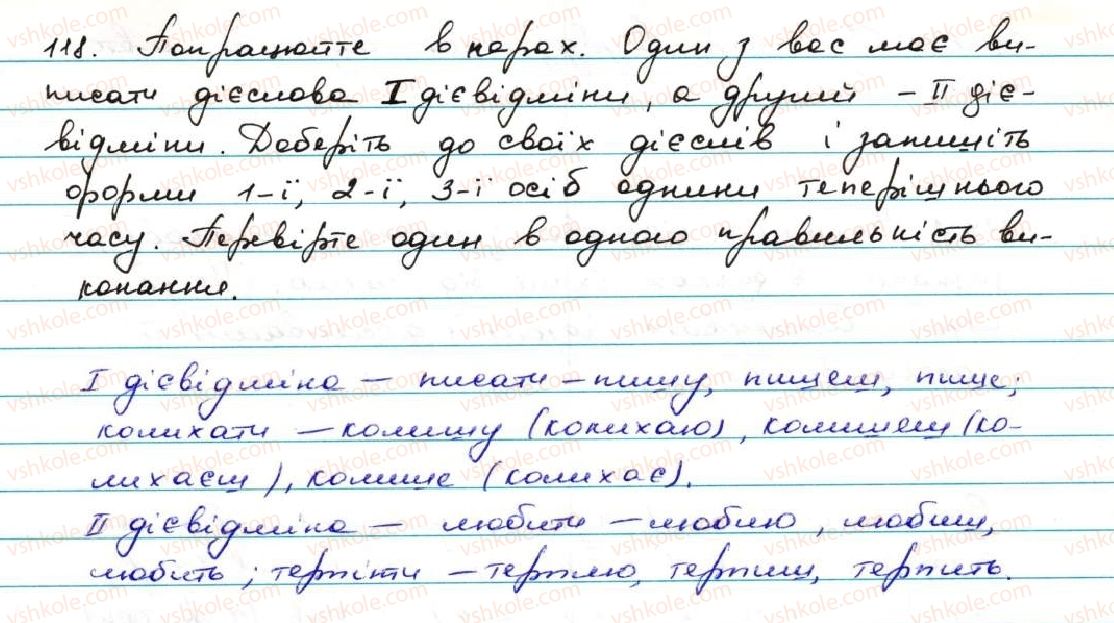 118. Попрацюйте в парах. Один з вас має ви-
писати дієслова І дієвідміни, а другий – ІІ діє-
відміни. Доберіть до своїх дієслів і запишіть
форми 1-ї, 2-ї, 3-ї осіб однини теперішнього
часу. Перевірте один в одного правильність ви-
конання.
І дієвідміна – писати – пишу, пишеш, пише;
колихати – колишу (колихаю), колишеш (ко-
лихаєш), колише (колихає).
ІІ дієвідміна – любити – люблю, любиш,
любить; терпіти – терплю, терпиш, терпить.